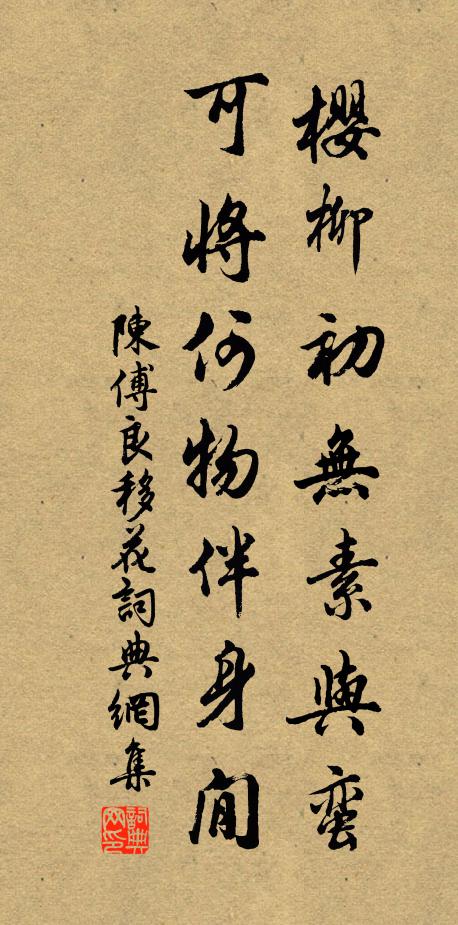 櫻柳初無素與蛮
可將何物伴身閒
陳傅良移花詞典網集
詞典网印